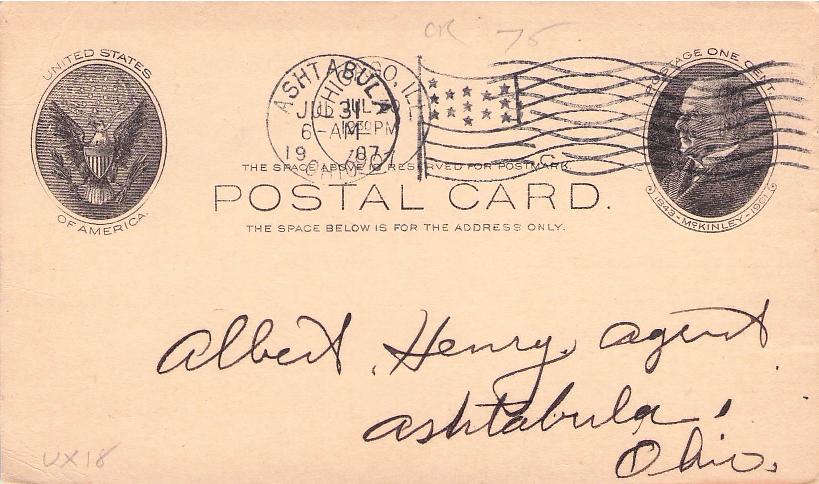 OR 75
UNITED STATES
OF AMERICA.
ASHTABULA
JUL 31
6-AM
19 07
CHICAGO, ILL.
JUL
PM
1907
POSTAGE ONE CENT.
1843-McKINLEY-1901
THE SPACE ABOVE IS RESERVED FOR POSTMARK.
POSTAL CARD.
THE SPACE BELOW IS FOR THE ADDRESS ONLY.
Albert Henry, Agent
Ashtabula,
Ohio.
UX18